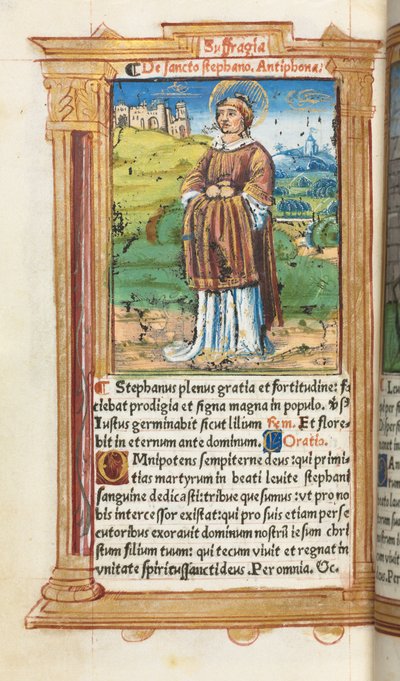 Suffragia
De sancto stephano. Antiphona:
Stephanus plenus gratia et fortitudine: fa
ciebat prodigia et signa magna in populo.
Iustus germinabit sicut lilium Rem. Et flore-
bit in eternum ante dominum. Oratio.
OMnipotens sempiterne deus: qui primi
tias martyrum in beati levite stephani
sanguine dedicasti: tribue quesumus: vt pro no
bis intercessor existat: qui pro suis etiam perse
cutoribus exoravit dominum nostrū iesum chri
stum filium tuum: qui tecum vivit et regnat in
vnitate spiritussancti deus. Per omnia. &c.